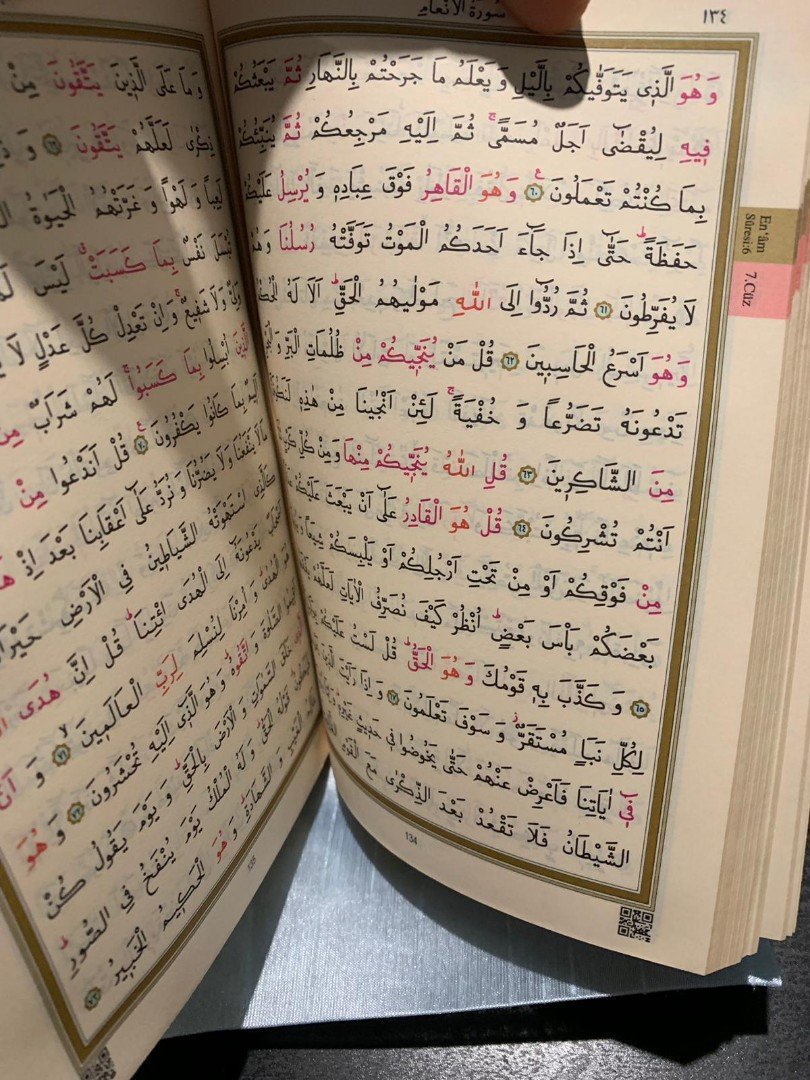 سُورَةُ الْاَنْعَامِ
١٣٤
وَهُوَ الَّذ۪ي يَتَوَفّٰيكُمْ بِالَّيْلِ وَيَعْلَمُ مَا جَرَحْتُمْ بِالنَّهَارِ ثُمَّ يَبْعَثُكُمْ
ف۪يهِ لِيُقْضٰٓى اَجَلٌ مُسَمًّىۚ ثُمَّ اِلَيْهِ مَرْجِعُكُمْ ثُمَّ يُنَبِّئُكُمْ
بِمَا كُنْتُمْ تَعْمَلُونَ ﴿٦٠﴾ وَهُوَ الْقَاهِرُ فَوْقَ عِبَادِه۪ وَيُرْسِلُ عَلَيْكُمْ
حَفَظَةًۜ حَتّٰٓى اِذَا جَٓاءَ اَحَدَكُمُ الْمَوْتُ تَوَفَّتْهُ رُسُلُنَا وَهُمْ
لَا يُفَرِّطُونَ ﴿٦١﴾ ثُمَّ رُدُّٓوا اِلَى اللّٰهِ مَوْلٰيهُمُ الْحَقِّۜ اَلَا لَهُ الْحُكْمُ
وَهُوَ اَسْرَعُ الْحَاسِب۪ينَ ﴿٦٢﴾ قُلْ مَنْ يُنَجّ۪يكُمْ مِنْ ظُلُمَاتِ الْبَرِّ
تَدْعُونَهُ تَضَرُّعاً وَخُفْيَةًۚ لَئِنْ اَنْجٰينَا مِنْ هٰذِه۪
مِنَ الشَّاكِر۪ينَ ﴿٦٣﴾ قُلِ اللّٰهُ يُنَجّ۪يكُمْ مِنْهَا وَمِنْ كُلِّ
اَنْتُمْ تُشْرِكُونَ ﴿٦٤﴾ قُلْ هُوَ الْقَادِرُ عَلٰٓى اَنْ يَبْعَثَ عَلَيْكُمْ
مِنْ فَوْقِكُمْ اَوْ مِنْ تَحْتِ اَرْجُلِكُمْ اَوْ يَلْبِسَكُمْ شِيَعاً
بَعْضَكُمْ بَأْسَ بَعْضٍۜ اُنْظُرْ كَيْفَ نُصَرِّفُ الْاٰيَاتِ لَعَلَّهُمْ
﴿٦٥﴾ وَكَذَّبَ بِه۪ قَوْمُكَ وَهُوَ الْحَقُّۜ قُلْ لَسْتُ عَلَيْكُمْ
لِكُلِّ نَبَأٍ مُسْتَقَرٌّۘ وَسَوْفَ تَعْلَمُونَ ﴿٦٧﴾ وَاِذَا رَاَيْتَ الَّذ۪ينَ
ف۪ٓي اٰيَاتِنَا فَاَعْرِضْ عَنْهُمْ حَتّٰى يَخُوضُوا ف۪ي حَد۪يثٍ غَيْرِه۪ۜ
الشَّيْطَانُ فَلَا تَقْعُدْ بَعْدَ الذِّكْرٰى مَعَ الْقَوْمِ
134
En'âm
Sûresi:6
7.Cüz
وَمَا عَلَى الَّذ۪ينَ يَتَّقُونَ مِنْ
ذِكْرٰى لَعَلَّهُمْ يَتَّقُونَ ﴿٦٩﴾
لَعِباً وَلَهْواً وَغَرَّتْهُمُ الْحَيٰوةُ
تُبْسَلَ نَفْسٌ بِمَا كَسَبَتْۗ لَيْسَ
وَلِيٌّ وَلَا شَف۪يعٌۚ وَاِنْ تَعْدِلْ كُلَّ عَدْلٍ لَا
الَّذ۪ينَ اُبْسِلُوا بِمَا كَسَبُواۚ لَهُمْ شَرَابٌ مِنْ
اَل۪يمٌ بِمَا كَانُوا يَكْفُرُونَ ﴿٧٠﴾ قُلْ اَنَدْعُوا مِنْ
مَا لَا يَنْفَعُنَا وَلَا يَضُرُّنَا وَنُرَدُّ عَلٰٓى اَعْقَابِنَا بَعْدَ اِذْ
كَالَّذِي اسْتَهْوَتْهُ الشَّيَاط۪ينُ فِي الْاَرْضِ حَيْرَانَ
اَصْحَابٌ يَدْعُونَهُٓ اِلَى الْهُدَى ائْتِنَاۜ قُلْ اِنَّ هُدَى
هُوَ الْهُدٰىۜ وَاُمِرْنَا لِنُسْلِمَ لِرَبِّ الْعَالَم۪ينَۙ ﴿٧١﴾ وَاَنْ
الصَّلٰوةَ وَاتَّقُوهُۜ وَهُوَ الَّذ۪ٓي اِلَيْهِ تُحْشَرُونَ ﴿٧٢﴾ وَهُوَ
خَلَقَ السَّمٰوَاتِ وَالْاَرْضَ بِالْحَقِّۜ وَيَوْمَ يَقُولُ كُنْ
قَوْلُهُ الْحَقُّۜ وَلَهُ الْمُلْكُ يَوْمَ يُنْفَخُ فِي الصُّورِۜ
الْغَيْبِ وَالشَّهَادَةِۜ وَهُوَ الْحَك۪يمُ الْخَب۪يرُ ﴿٧٣﴾
135